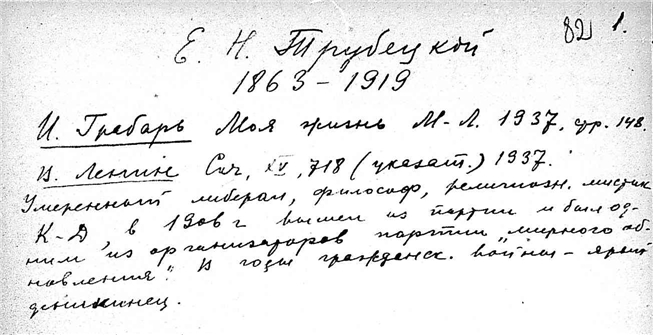 82 1.
Е. Н. Трубецкой
1863 – 1919
И. Грабарь Моя жизнь М-Л. 1937, стр. 148.
В. Ленин Соч, XV, 718 (указат.) 1937.
Умеренный либерал, философ, религиозн. мистик
К-Д, в 1906 г вышел из партии и был од-
ним из организаторов партии "мирного об-
новления". В годы гражданск. войны – ярый
деникинец.